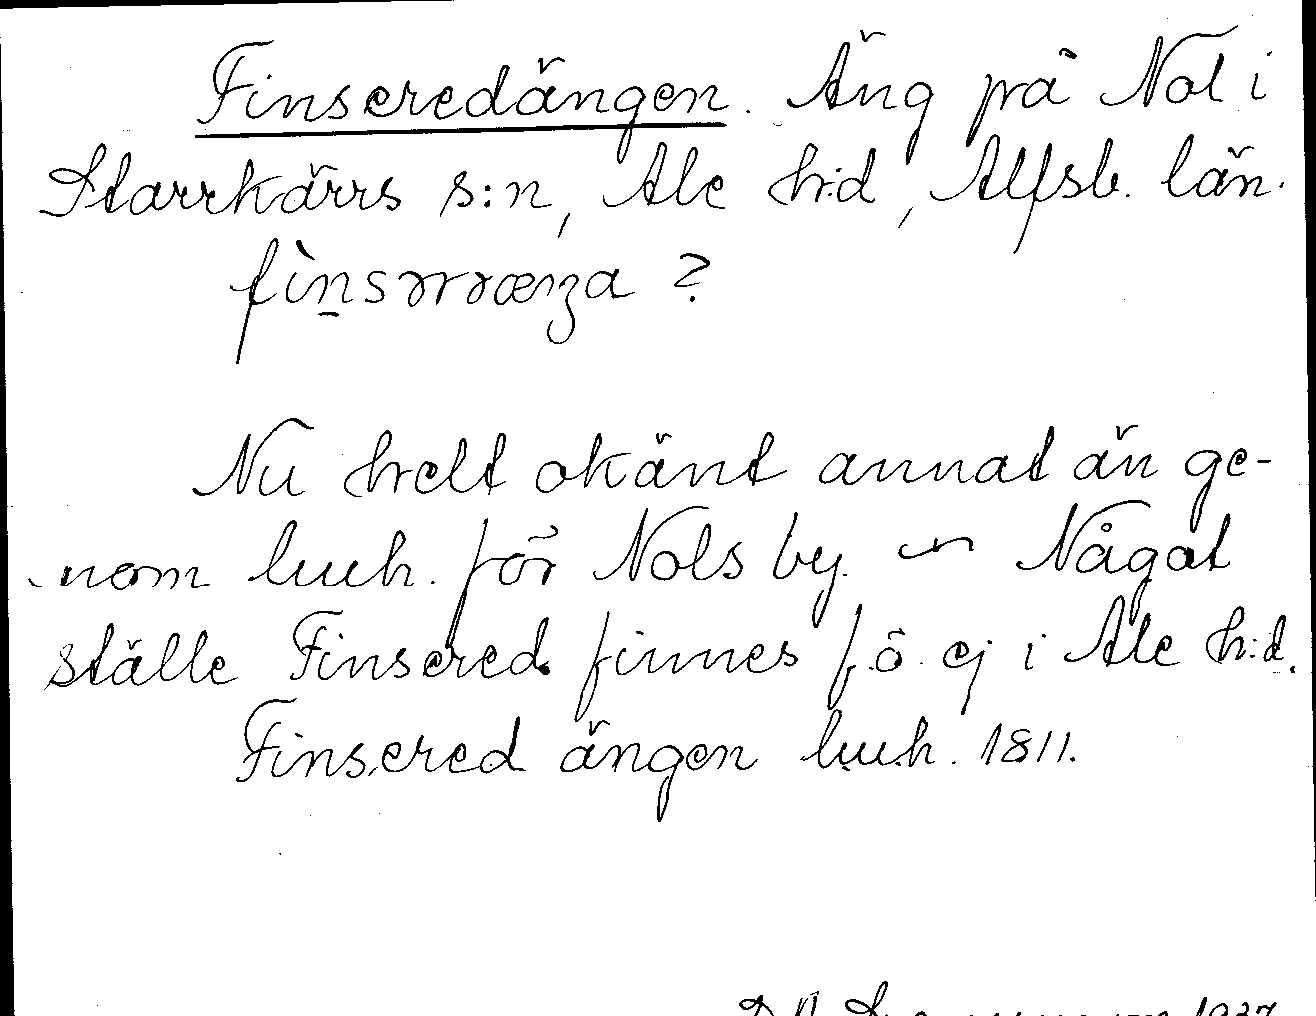 Finseredängen. Äng på Nol i
Starrkärrs s:n, Ale h:d, Älfsb. län.
fìnsərræŋa ?
Nu helt okänt annat än ge-
nom luch. för Nols by. ~ Något
ställe Finsered finnes f.ö. ej i Ale h:d.
Finsered ängen luch. 1811.
1937